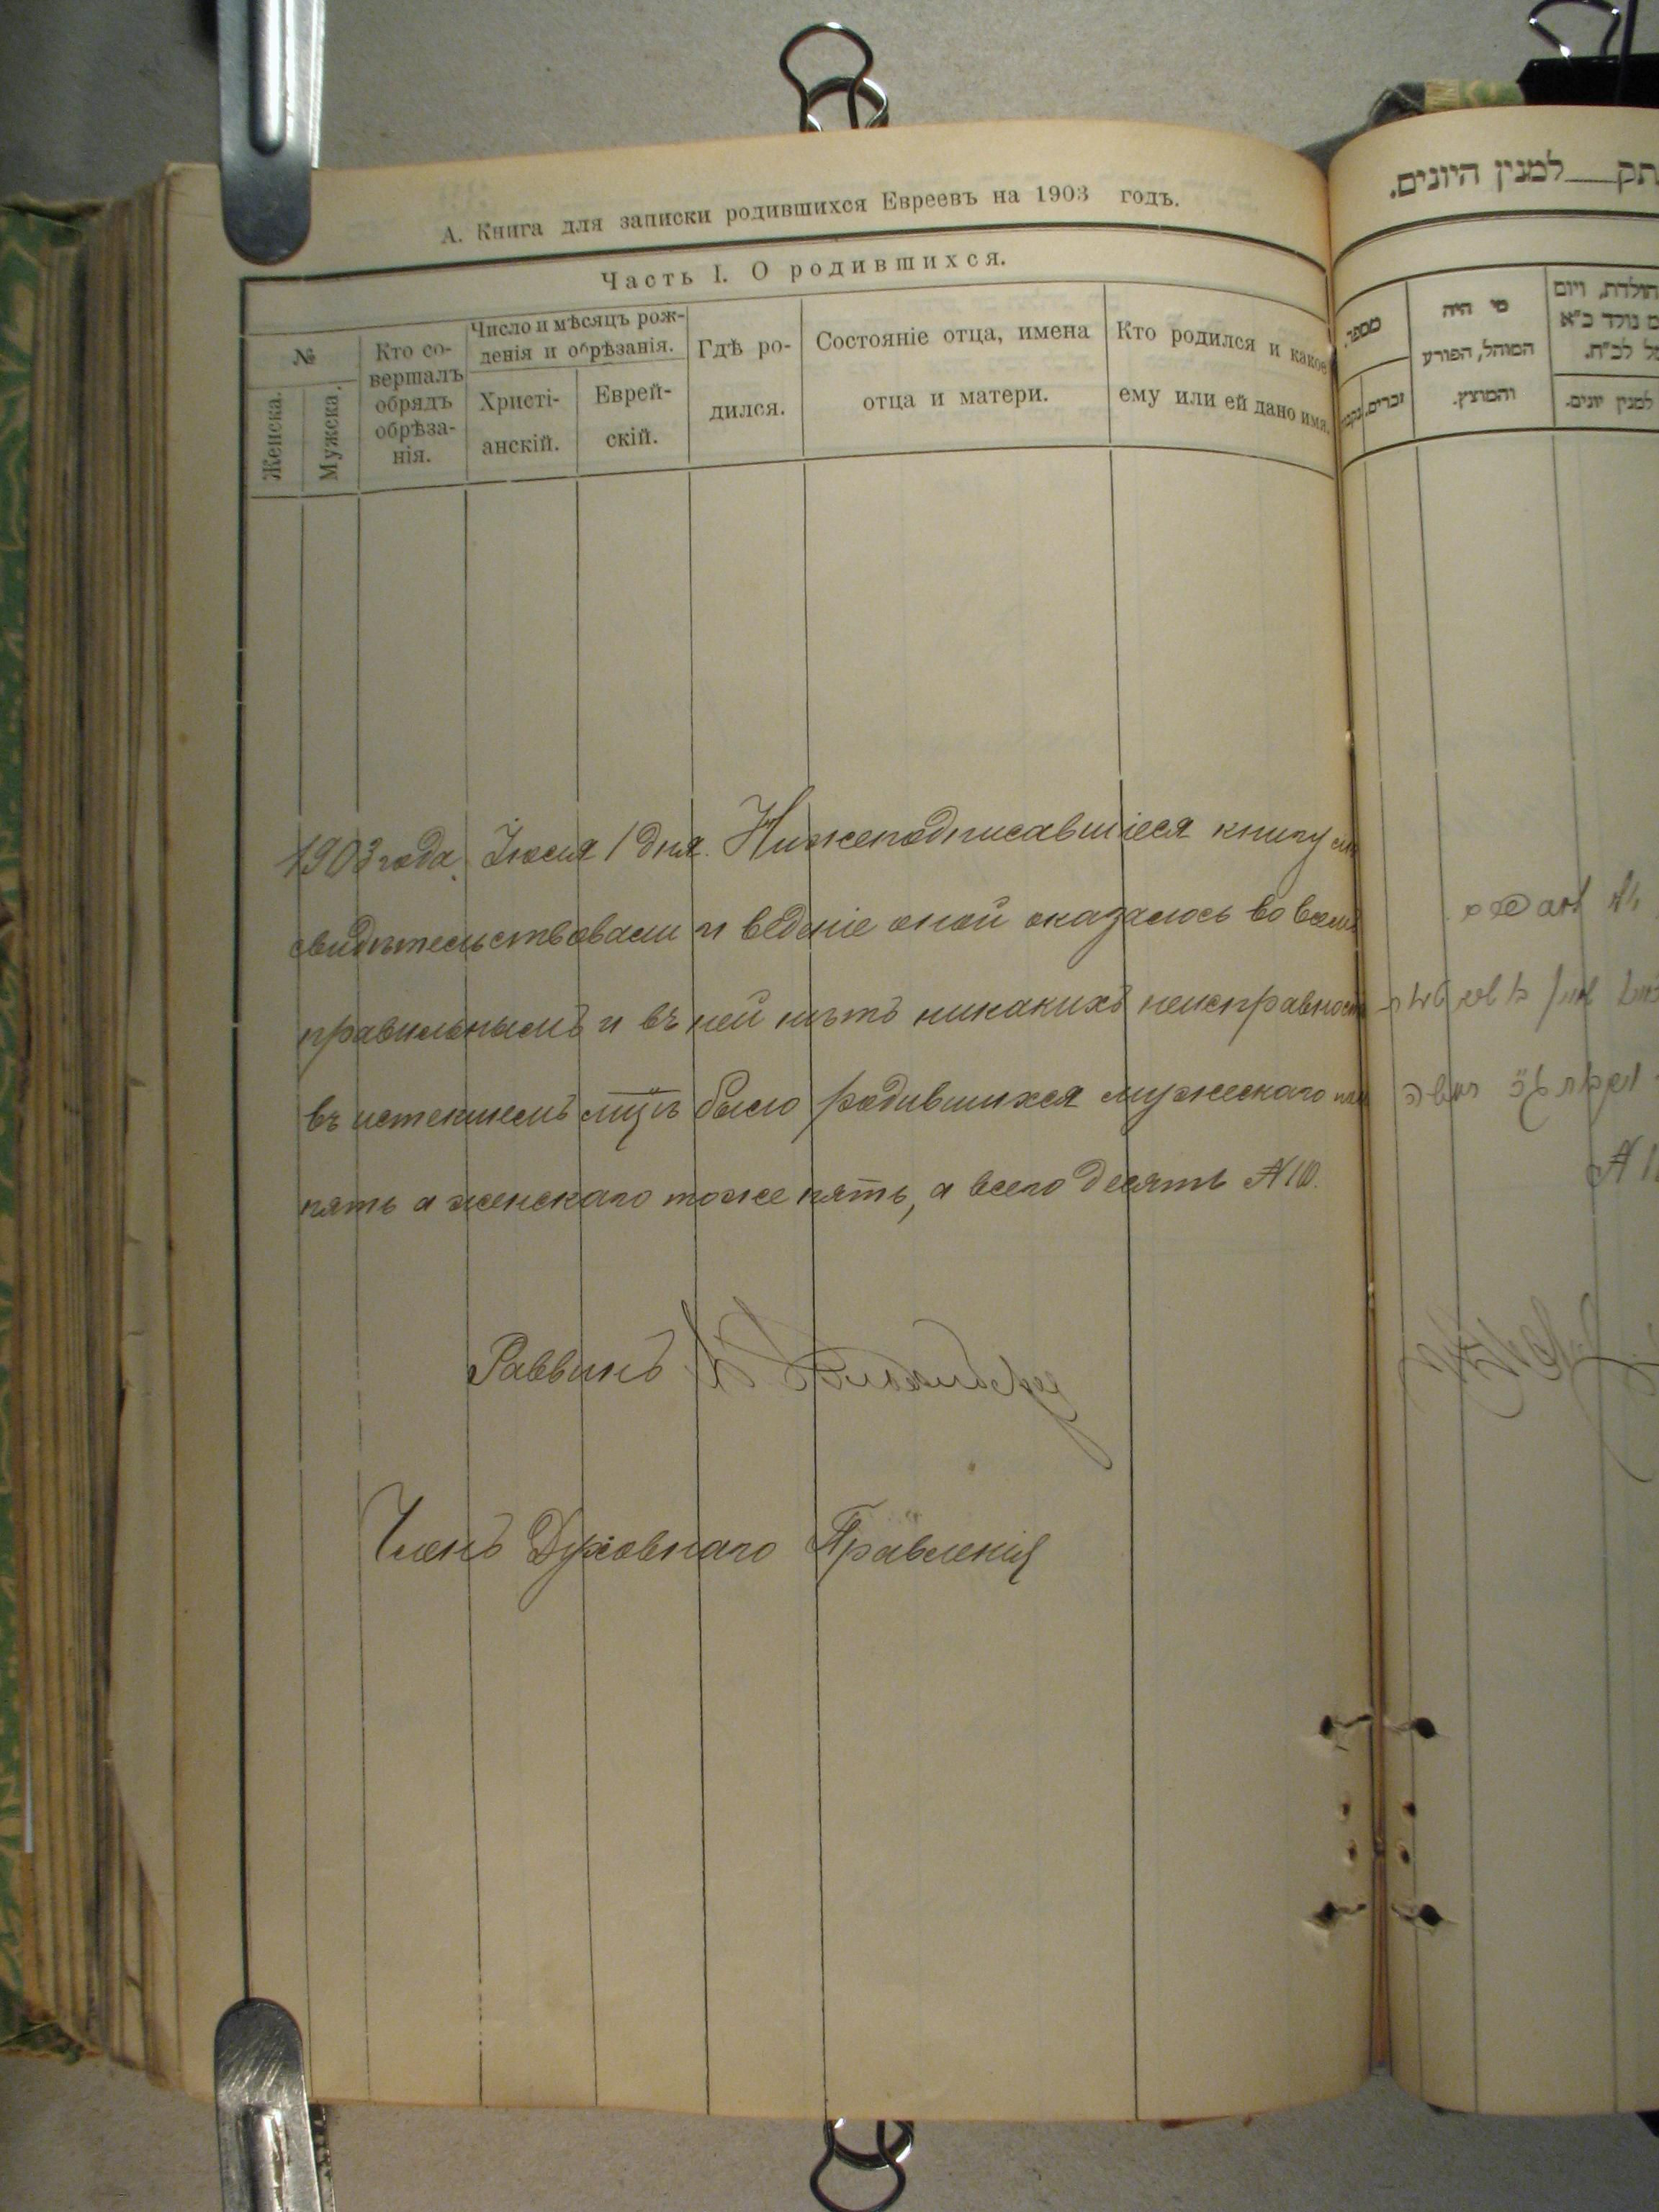 А. Книга для записки родившихся Евреевъ на 1903 годъ.
Часть I. О родившихся.
№
Женска.
Мужска.
Кто со-
вершалъ
обрядъ
обрѣза-
нія.
Число и мѣсяцъ рож-
денія и обрѣзанія.
Христі-
анскій.
Еврей-
скій.
Гдѣ ро-
дился.
Состояніе отца, имена
отца и матери.
Кто родился и какое
ему или ей дано имя.
1903 года Іюля 1 дня. Нижеподписавшіеся книгу
свидѣтельствовали и веденіе оной оказалось во всемъ
правильнымъ и въ ней нѣтъ никакихъ неисправност
въ истекшемъ мцѣ было родившихся мужескаго пола
пять а женскаго тоже пять, а всего десять №10.
Раввинъ
Членъ Духовнаго Правленія
תק למנין היונים.
מספר
זכרים.
מי היה
המוהל, הפורע
והמוצץ.
הולדת, ויום
ם נולד כ"א
ל לכ"ח.
למנין יונים.